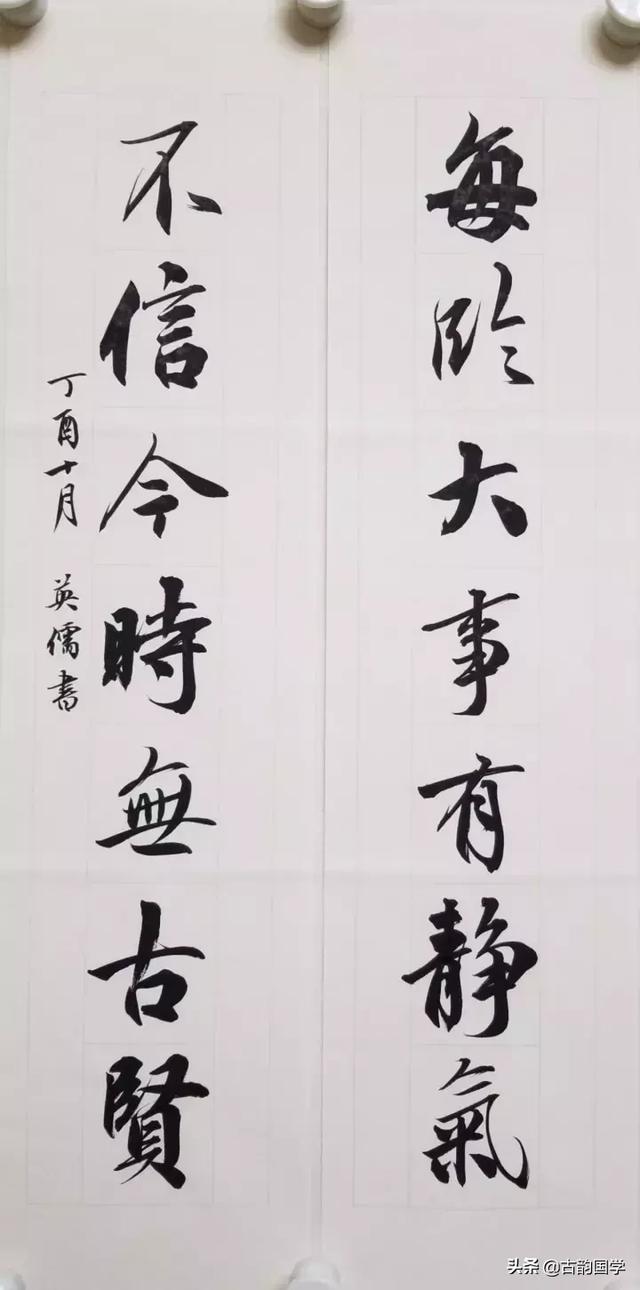 每臨大事有静氣
不信今時無古賢
丁酉十月 英儒書
头条 @古韵国学